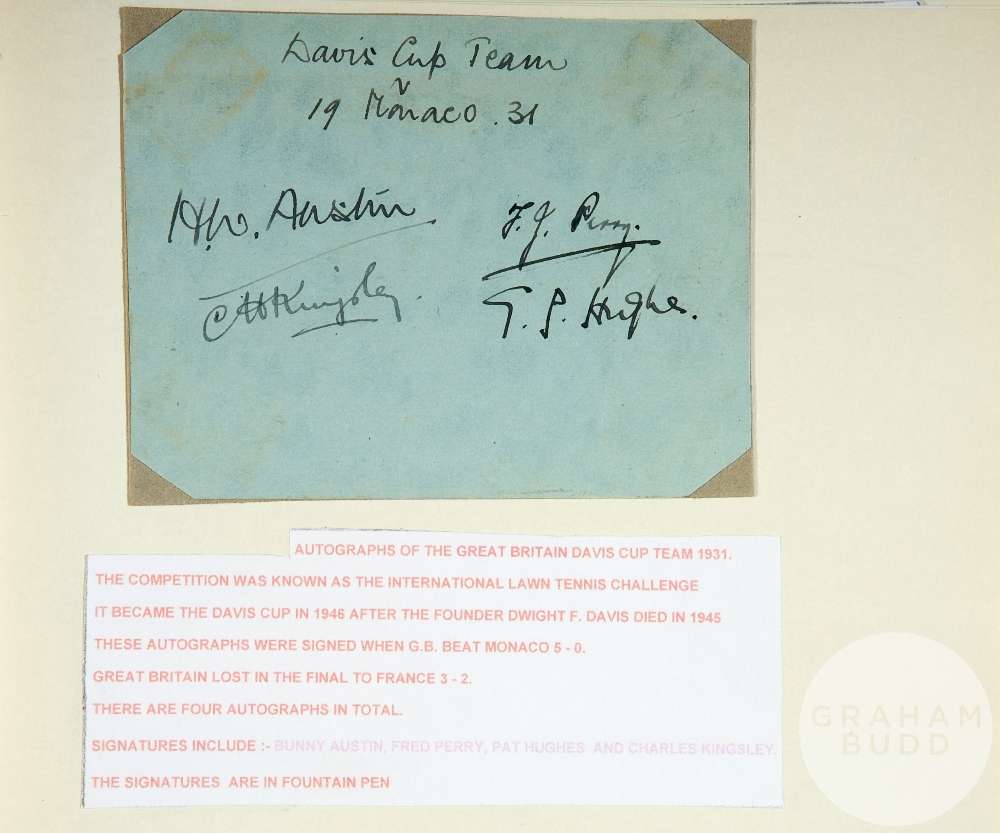 Davis Cup Team
v
19 Monaco. 31
H.W. Austin.
F.J. Perry.
C H Kingsley.
G. P. Hughes.
AUTOGRAPHS OF THE GREAT BRITAIN DAVIS CUP TEAM 1931.
THE COMPETITION WAS KNOWN AS THE INTERNATIONAL LAWN TENNIS CHALLENGE
IT BECAME THE DAVIS CUP IN 1946 AFTER THE FOUNDER DWIGHT F. DAVIS DIED IN 1945
THESE AUTOGRAPHS WERE SIGNED WHEN G.B. BEAT MONACO 5 - 0.
GREAT BRITAIN LOST IN THE FINAL TO FRANCE 3 - 2.
THERE ARE FOUR AUTOGRAPHS IN TOTAL.
SIGNATURES INCLUDE :- BUNNY AUSTIN, FRED PERRY, PAT HUGHES AND CHARLES KINGSLEY.
THE SIGNATURES ARE IN FOUNTAIN PEN
GRAHAM
BUDD